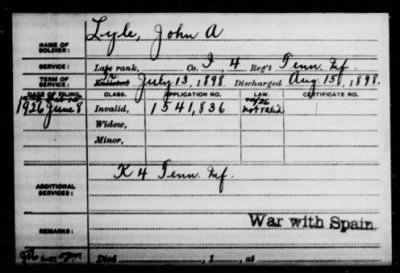 Lyle, John A
NAME OF SOLDIER:
SERVICE: Late rank, Co. I 4 Reg't Tenn. Inf.
TERM OF SERVICE: Enlisted July 13, 1898 Discharged Aug. 15, 1898.
DATE OF FILING. CLASS. APPLICATION NO. LAW. CERTIFICATE NO.
1926 June 8 Invalid, 1541,836 Not Valid
Widow,
Minor,
ADDITIONAL SERVICES: K 4 Tenn. Inf.
War with Spain.
REMARKS:
Died , 1 , at